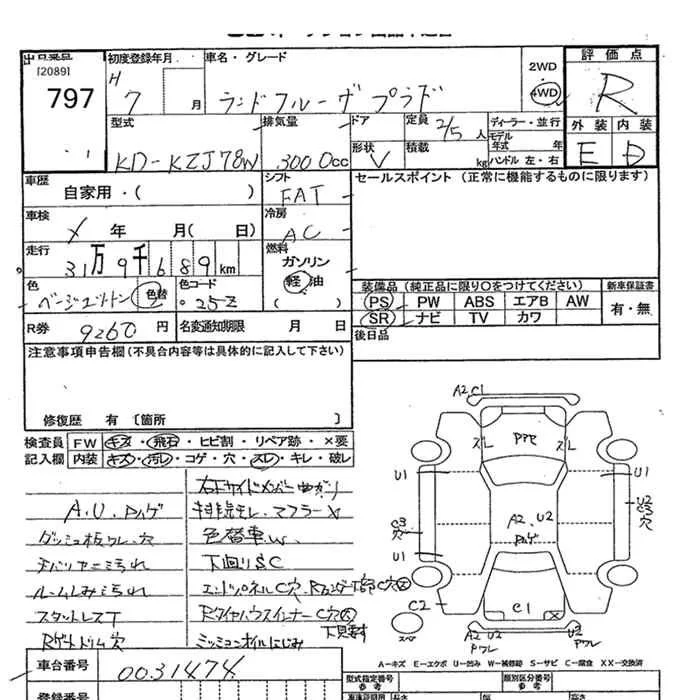 出品番号
[2089]
797
初度登録年月
H
7 月
車名・グレード
ランドクルーザ プラド
2WD
4WD
評価点
R
外装 内装
E D
型式
KD-KZJ78W
排気量
3000cc
ドア
形状
V
定員
2/5 人
積載
kg
ディーラー・並行
モデル
年式 年
ハンドル 左・右
車歴
自家用・( )
シフト
FAT
セールスポイント (正常に機能するものに限ります)
車検
X 年 月( 日)
冷房
AC
走行
31万9千689km
燃料
ガソリン
軽油
( )
色
ベージュツートン 色替
色コード
25-Z
装備品 (純正品に限り○をつけてください)
新車保証書
PS PW ABS エアB AW
SR ナビ TV カワ
有・無
R券 9260円
名変通知期限 月 日
後日品
注意事項申告欄 (不具合内容等は具体的に記入して下さい)
修復歴 有 〔箇所 〕
検査員 FW キズ・飛石・ヒビ割・リペア跡・×要
記入欄 内装 キズ・汚レ・コゲ・穴・スレ・キレ・破レ
A.U.ハゲ
ダッシュ板ワレ.穴
天バリヤニ汚れ
ルームしみ汚れ
スタットレスT
Rゲートトリム穴
右下サイドメンバー曲がり
マフラーX
色替車W
下回りSC
エンドパネルC穴
RタイヤハウスインナーC穴
下見要す
ミッションオイルにじみ
A2 C1
ズレ
ズレ
U1
U1
U2
C3
穴
C3
穴
U1
A2.U2
ハゲ
C2
C1
X
A2 U2
ワレ
A2 U2
ワレ
スペア
A—キズ E—エクボ U—凹み W—補修跡 S—サビ C—腐食 XX—交換済
車台番号
0031474
登録番号
型式指定番号
参考
類別区分番号
参考